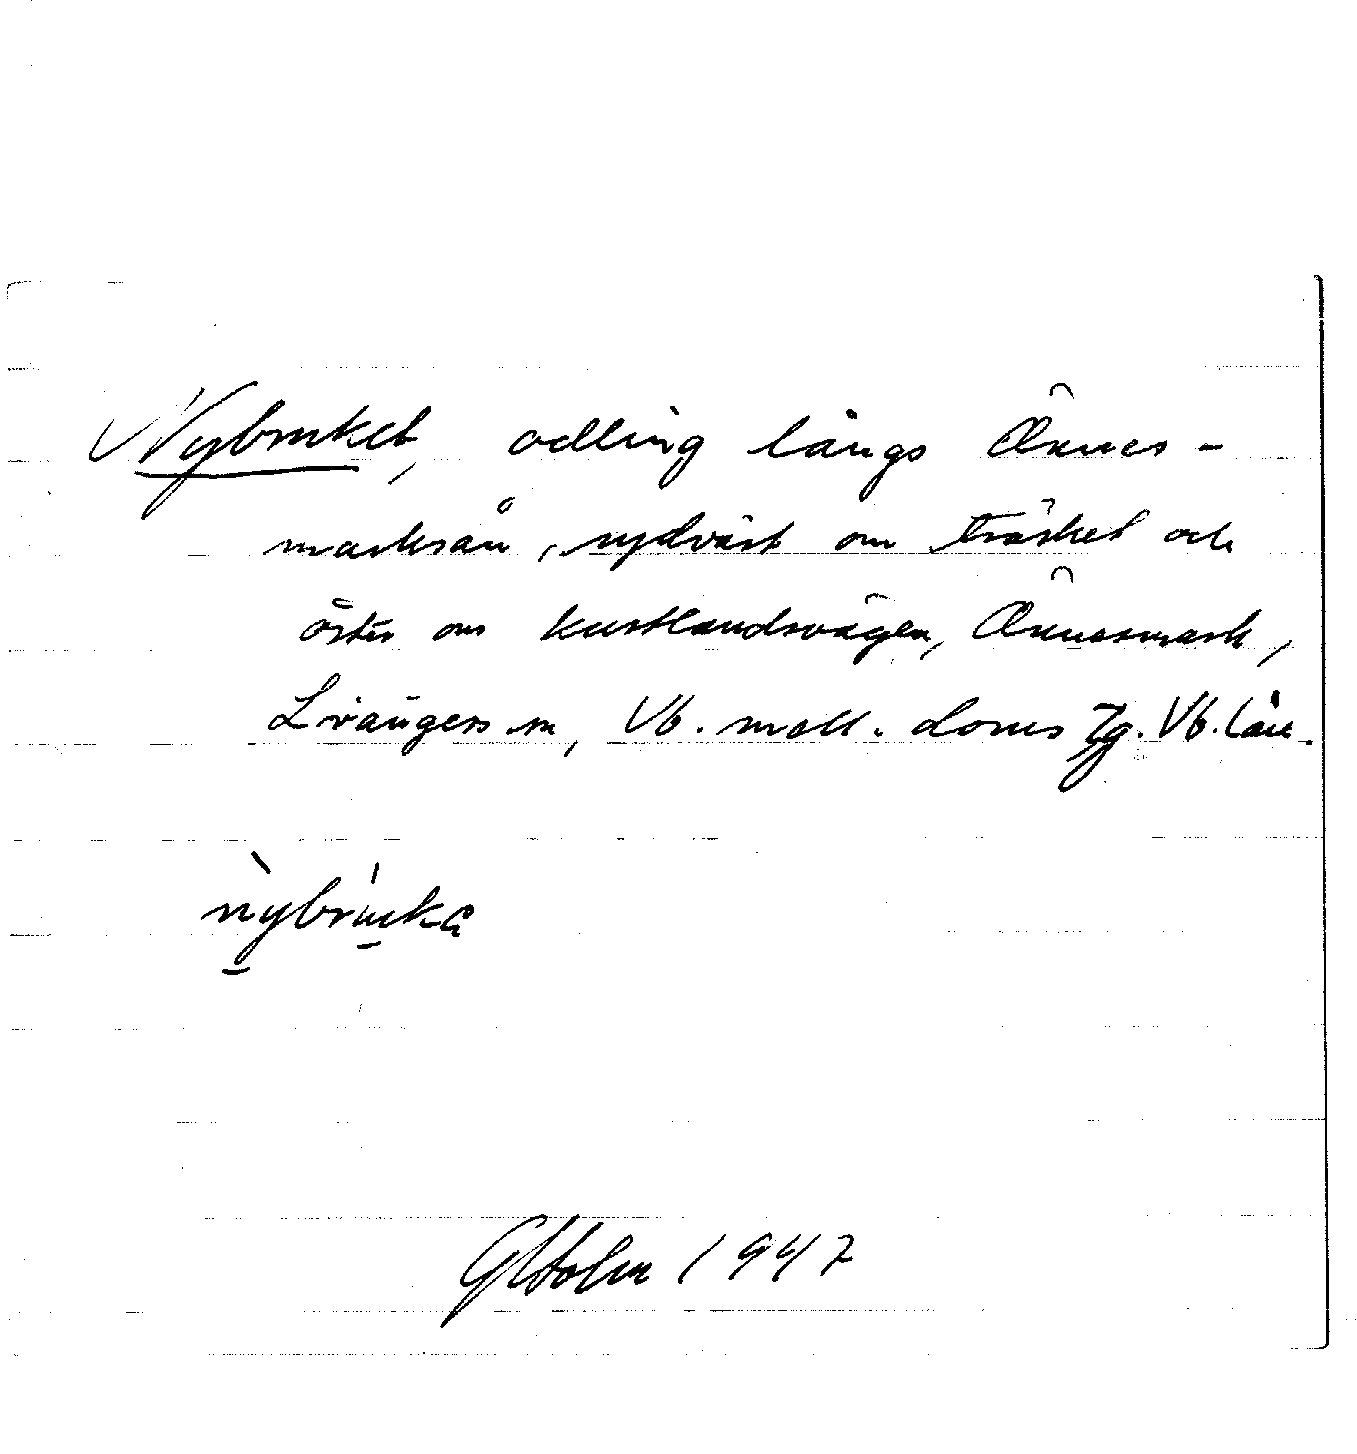 Nybruket, odling längs Önnes-
marksån, sydväst om träsket och
öster om kustlandsvägen, Önnesmark,
Lövångers sn, Vb. mell. doms Tg. Vb. län.
nybruka
G Holm 1947